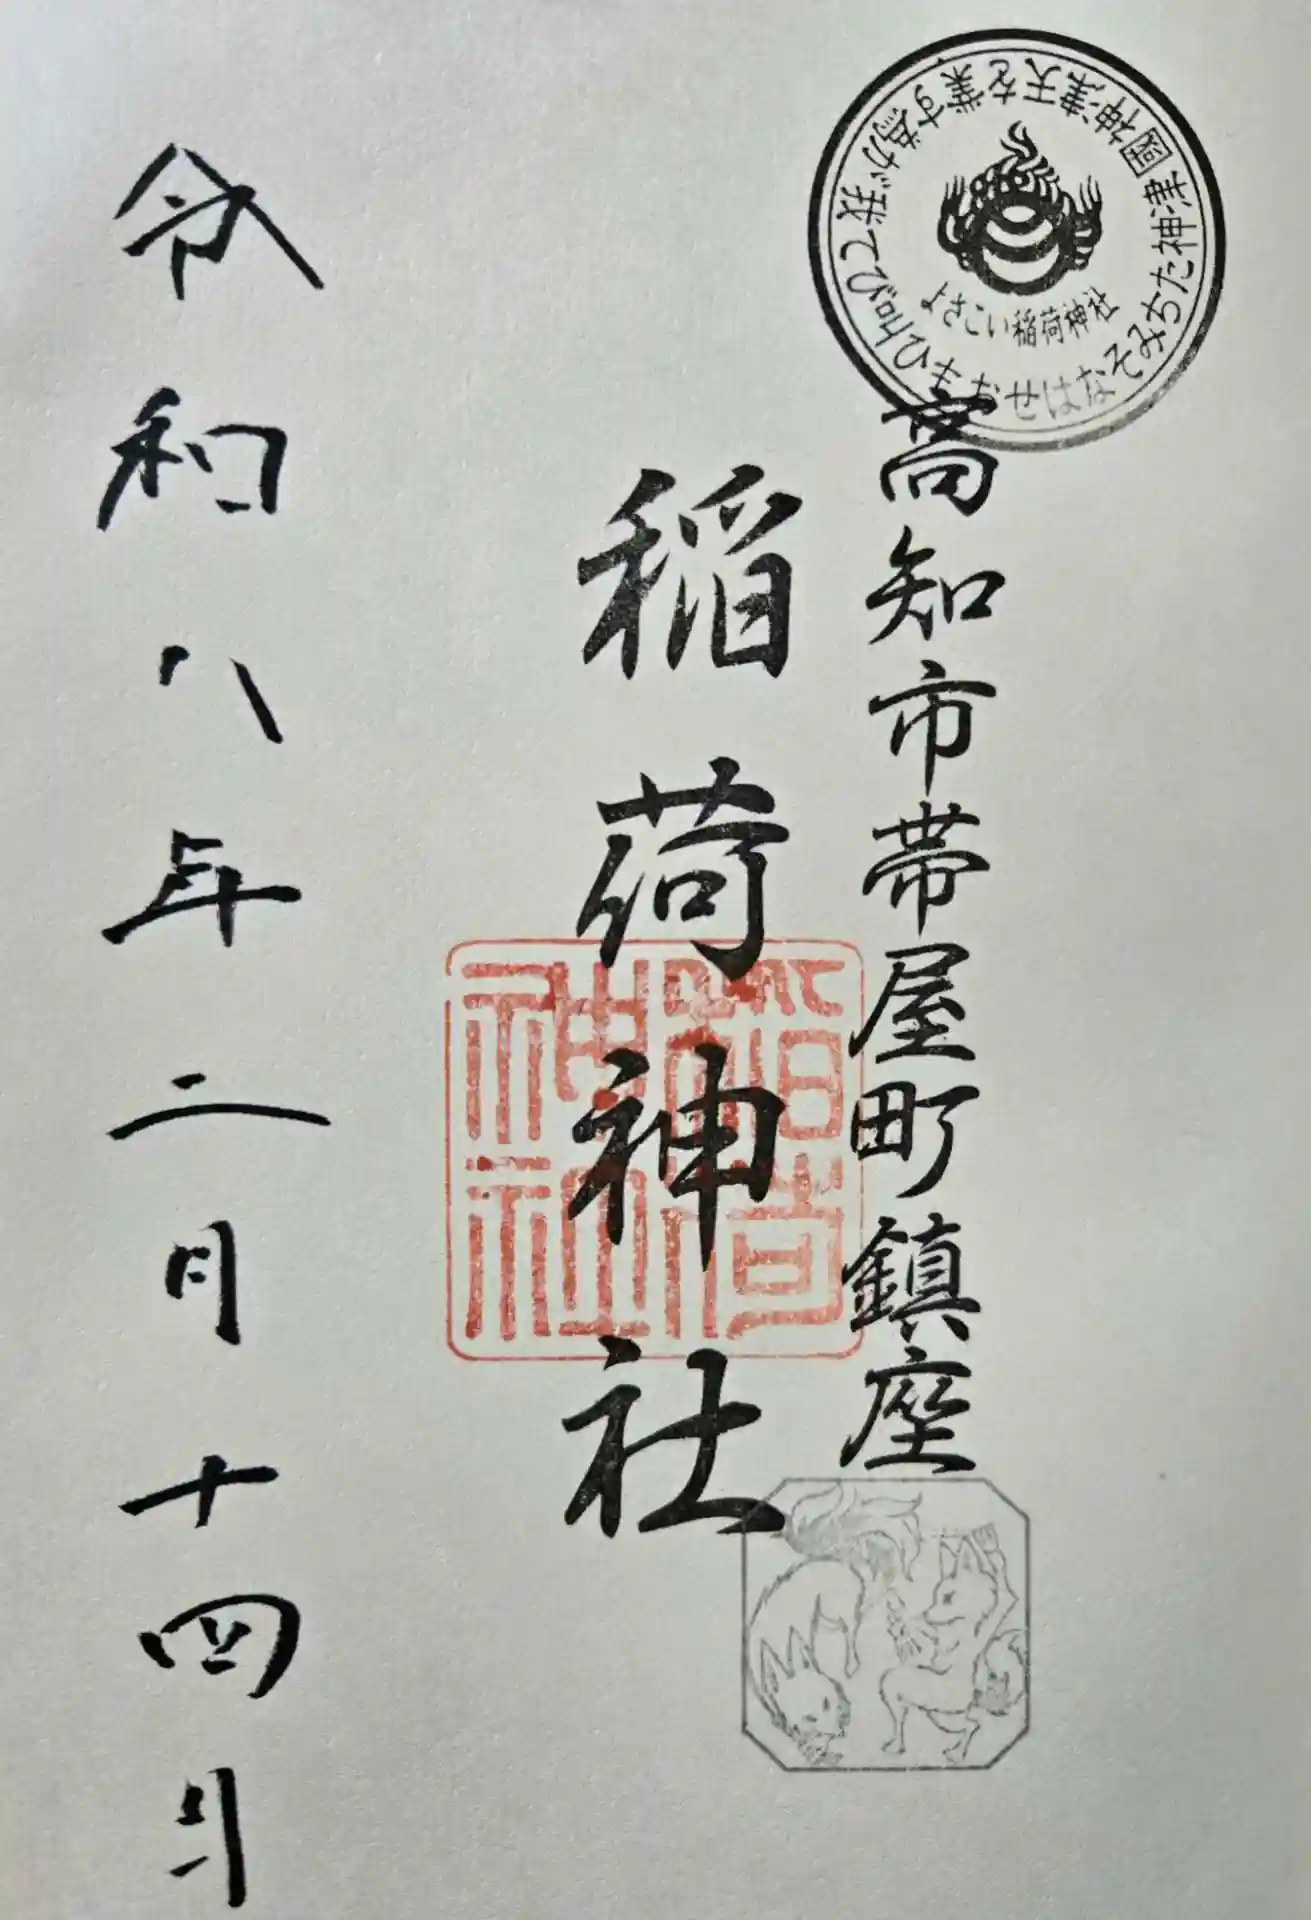 我が為す業を天津神國津神たちみそなはせ
よさこい稲荷神社
高知市帯屋町鎮座
稲荷神社
稲荷神社
令和八年二月十四日